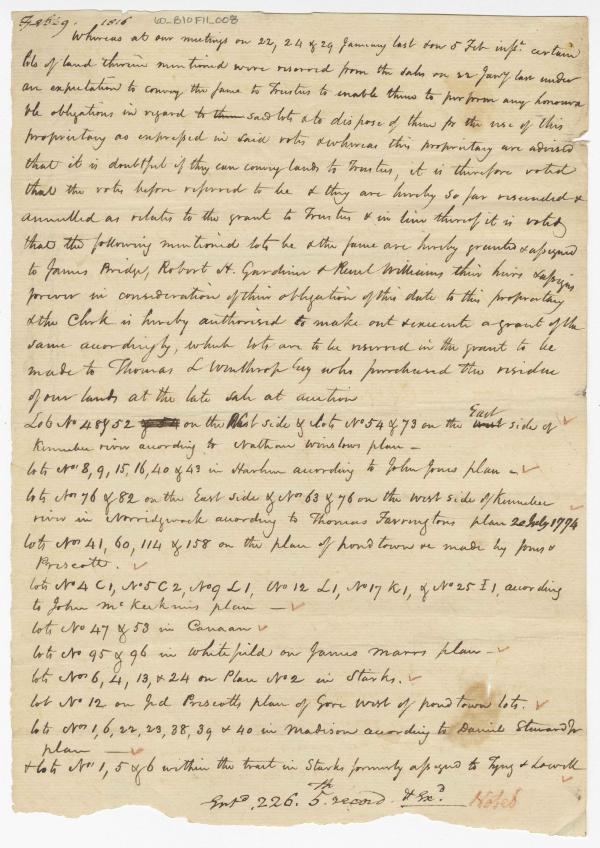 Feb 9. 1816 60_B10F11_008
Whereas at our meetings on 22, 24 & 29 January last & on 5 Feb inst. certain
lots of land therein mentioned were reserved from the sales on 22 Jany last under
an expectation to convey the same to Trustees to enable them to perform any honoura
ble obligations in regard to them said lots & to dispose of them for the use of this
proprietary as expressed in said votes & whereas this proprietary are advised
that it is doubtful if they can convey lands to Trustees, it is therefore voted
that the votes before referred to be & they are hereby so far rescinded &
annulled as relates to the grant to Trustees & in lieu thereof it is voted
that the following mentioned lots be & the same are hereby granted & assigned
to James Bridge, Robert H. Gardiner & Reuel Williams their heirs & assigns
forever in consideration of their obligation of this date to this proprietary
& the Clerk is hereby authorised to make out & execute a grant of the
same accordingly, which lots are to be reserved in the grant to be
made to Thomas L Winthrop Esq who purchased the residue
of our lands at the late sale at auction
Lots No 48 & 52 on the West side & lots No 54 & 73 on the west East side of
Kennebec river according to Nathan Winslows plan -
lots Nos 8, 9, 15, 16, 40 & 43 in Harlem according to John Jones plan -
lots Nos 76 & 82 on the East side & Nos 63 & 76 on the west side of Kennebec
river in Norridgwock according to Thomas Farringtons plan 20 July 1774
lots Nos 41, 60, 114 & 158 on the plan of pondtown &c made by Jones &
Prescott.
lots No 4 C1, No 5 C2, No 9 L1, No 12 L1, No 17 K1, & No 25 I1, according
to John McKechnies plan -
lots No 47 & 53 in Canaan
lots No 95 & 96 in Whitefield on James Marrs plan -
lots Nos 6, 4, 13, & 24 on Plan No 2 in Starks.
lot No 12 on Jed Prescotts plan of Gore west of pondtown lots.
lots Nos 1, 6, 22, 23, 38, 39 & 40 in Madison according to Daniel Steward Jr
plan -
& lots Nos 1, 5 & 6 within the tract in Starks formerly assigned to Tyng & Lowell
Entd. 226. 5th record & Exd. Noted